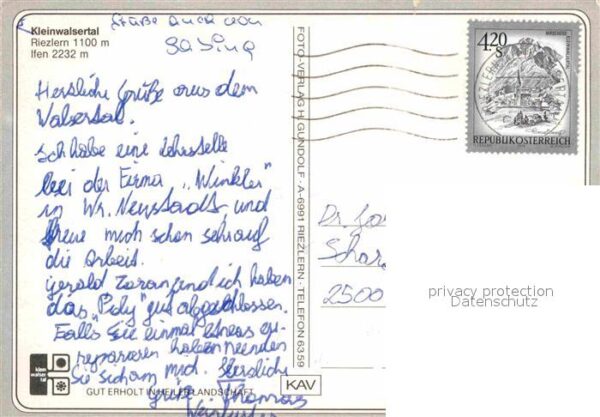 Kleinwalsertal
Riezlern 1100 m
Ifen 2232 m
Grüße auch von
Sabina
Herzliche Grüße aus dem
Walsertal.
Ich habe eine Lehrstelle
bei der Firma „Winkler"
in Wr. Neustadt und
freue mich schon sehr auf
die Arbeit.
Gerald und ich haben
das „Poly" gut abgeschlossen.
Falls Sie einmal etwas zu
reparieren haben wenden
Sie sich an mich. Herzliche
Grüße Thomas
GUT ERHOLT IN HEILER LANDSCHAFT
klein
walser
tal
KAV
FOTO-VERLAG H. GUNDOLF · A-6991 RIEZLERN · TELEFON 6359
4,20
S
REPUBLIK ÖSTERREICH
Dr.
2500
privacy protection
Datenschutz